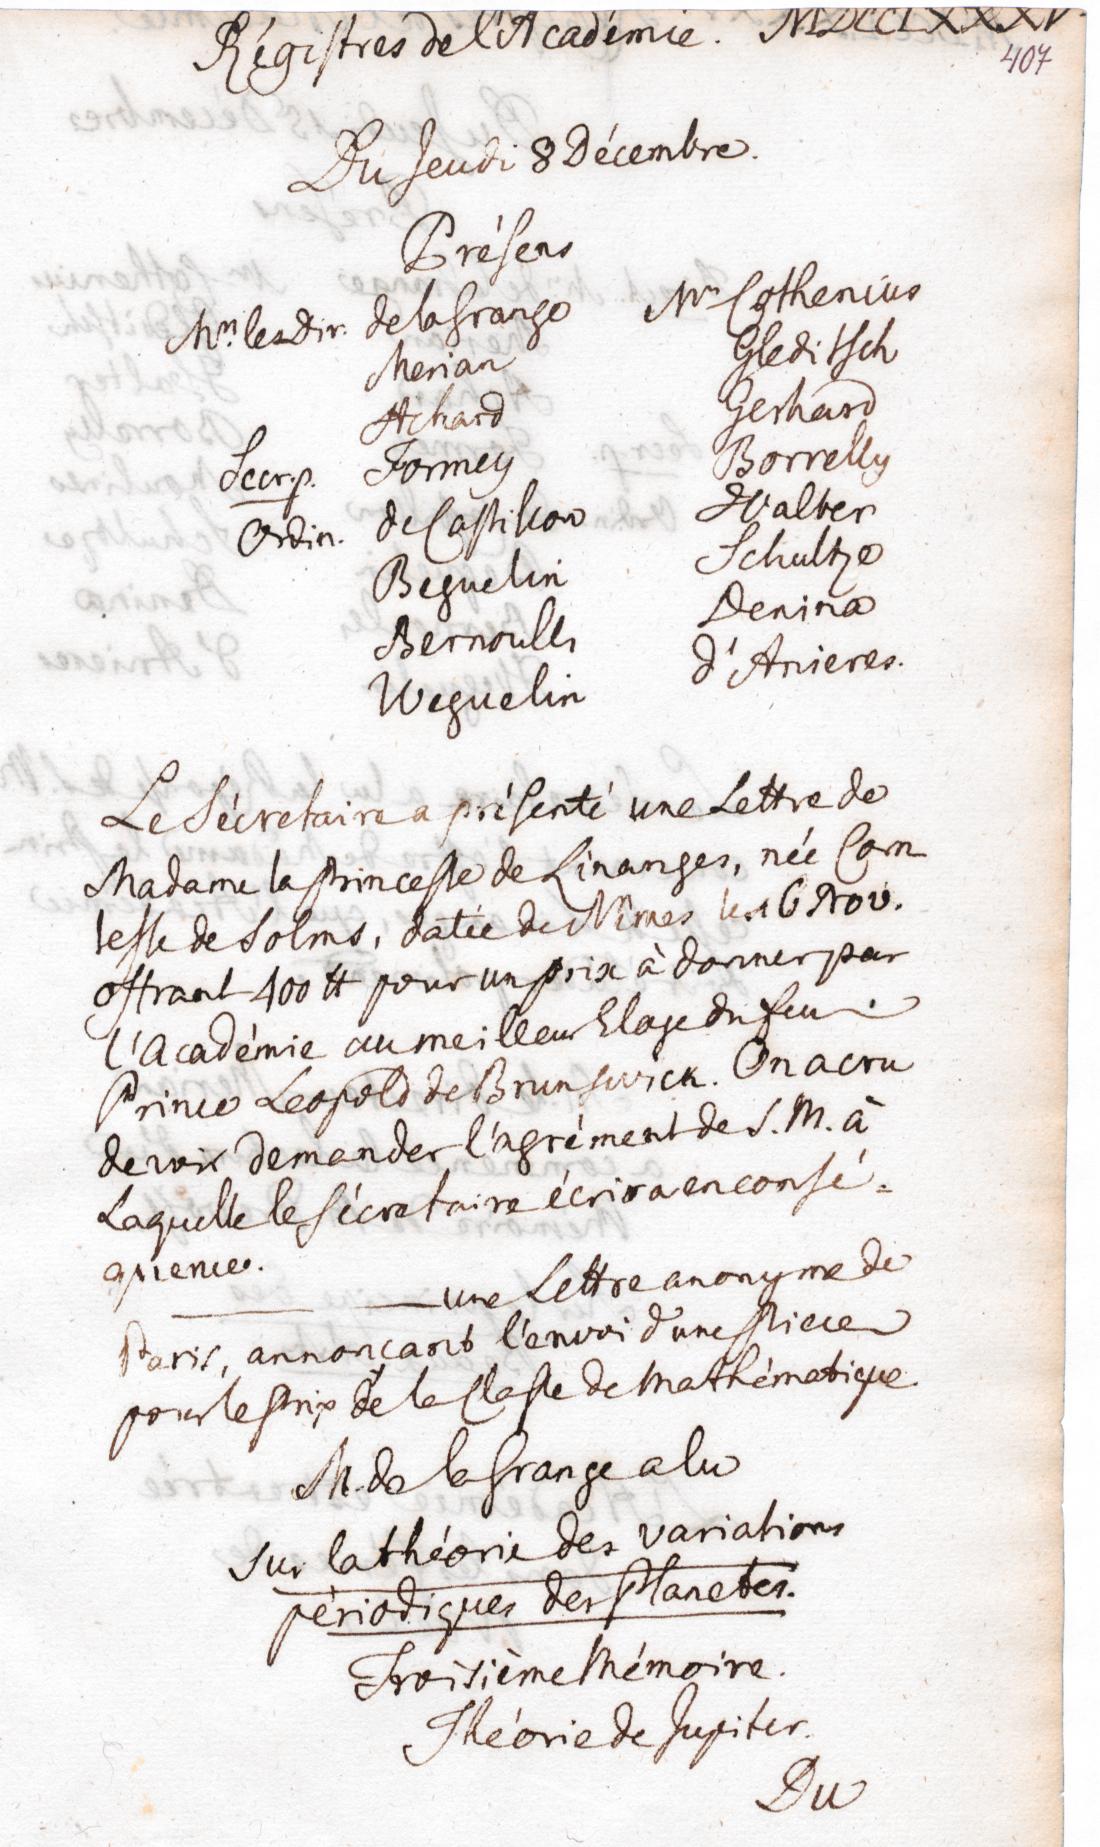 Régistres de l'Académie. MDCCLXXXV.
407
Du Jeudi 8 Décembre.
Présens
Mrs. les Dir. de la Grange
Merian
Achard
Secr. p. Formey
Ordin. de Castillon
Beguelin
Bernoulli
Weguelin
Mrs Cothenius
Gleditsch
Gerhard
Borrelly
Walter
Schultze
Denina
d'Anieres.
Le Sécretaire a présenté une Lettre de
Madame la Princesse de Linanges, née Com
tesse de Solms, datée de Nîmes le 16 Nov.
offrant 400 tt pour un prix à donner par
l'Académie au meilleur Eloge du feu
Prince Leopold de Brunswick. On a cru
devoir demander l'agrément de S. M. à
Laquelle le Sécretaire écrira en consé=
quence.
une Lettre anonyme de
Paris, annonçant l'envoi d'une Piece
pour le Prix de la Classe de Mathématique
M. de la Grange a lu
Sur la théorie des variations
périodiques des Planetes.
Troisième Mémoire.
Théorie de Jupiter.
Du